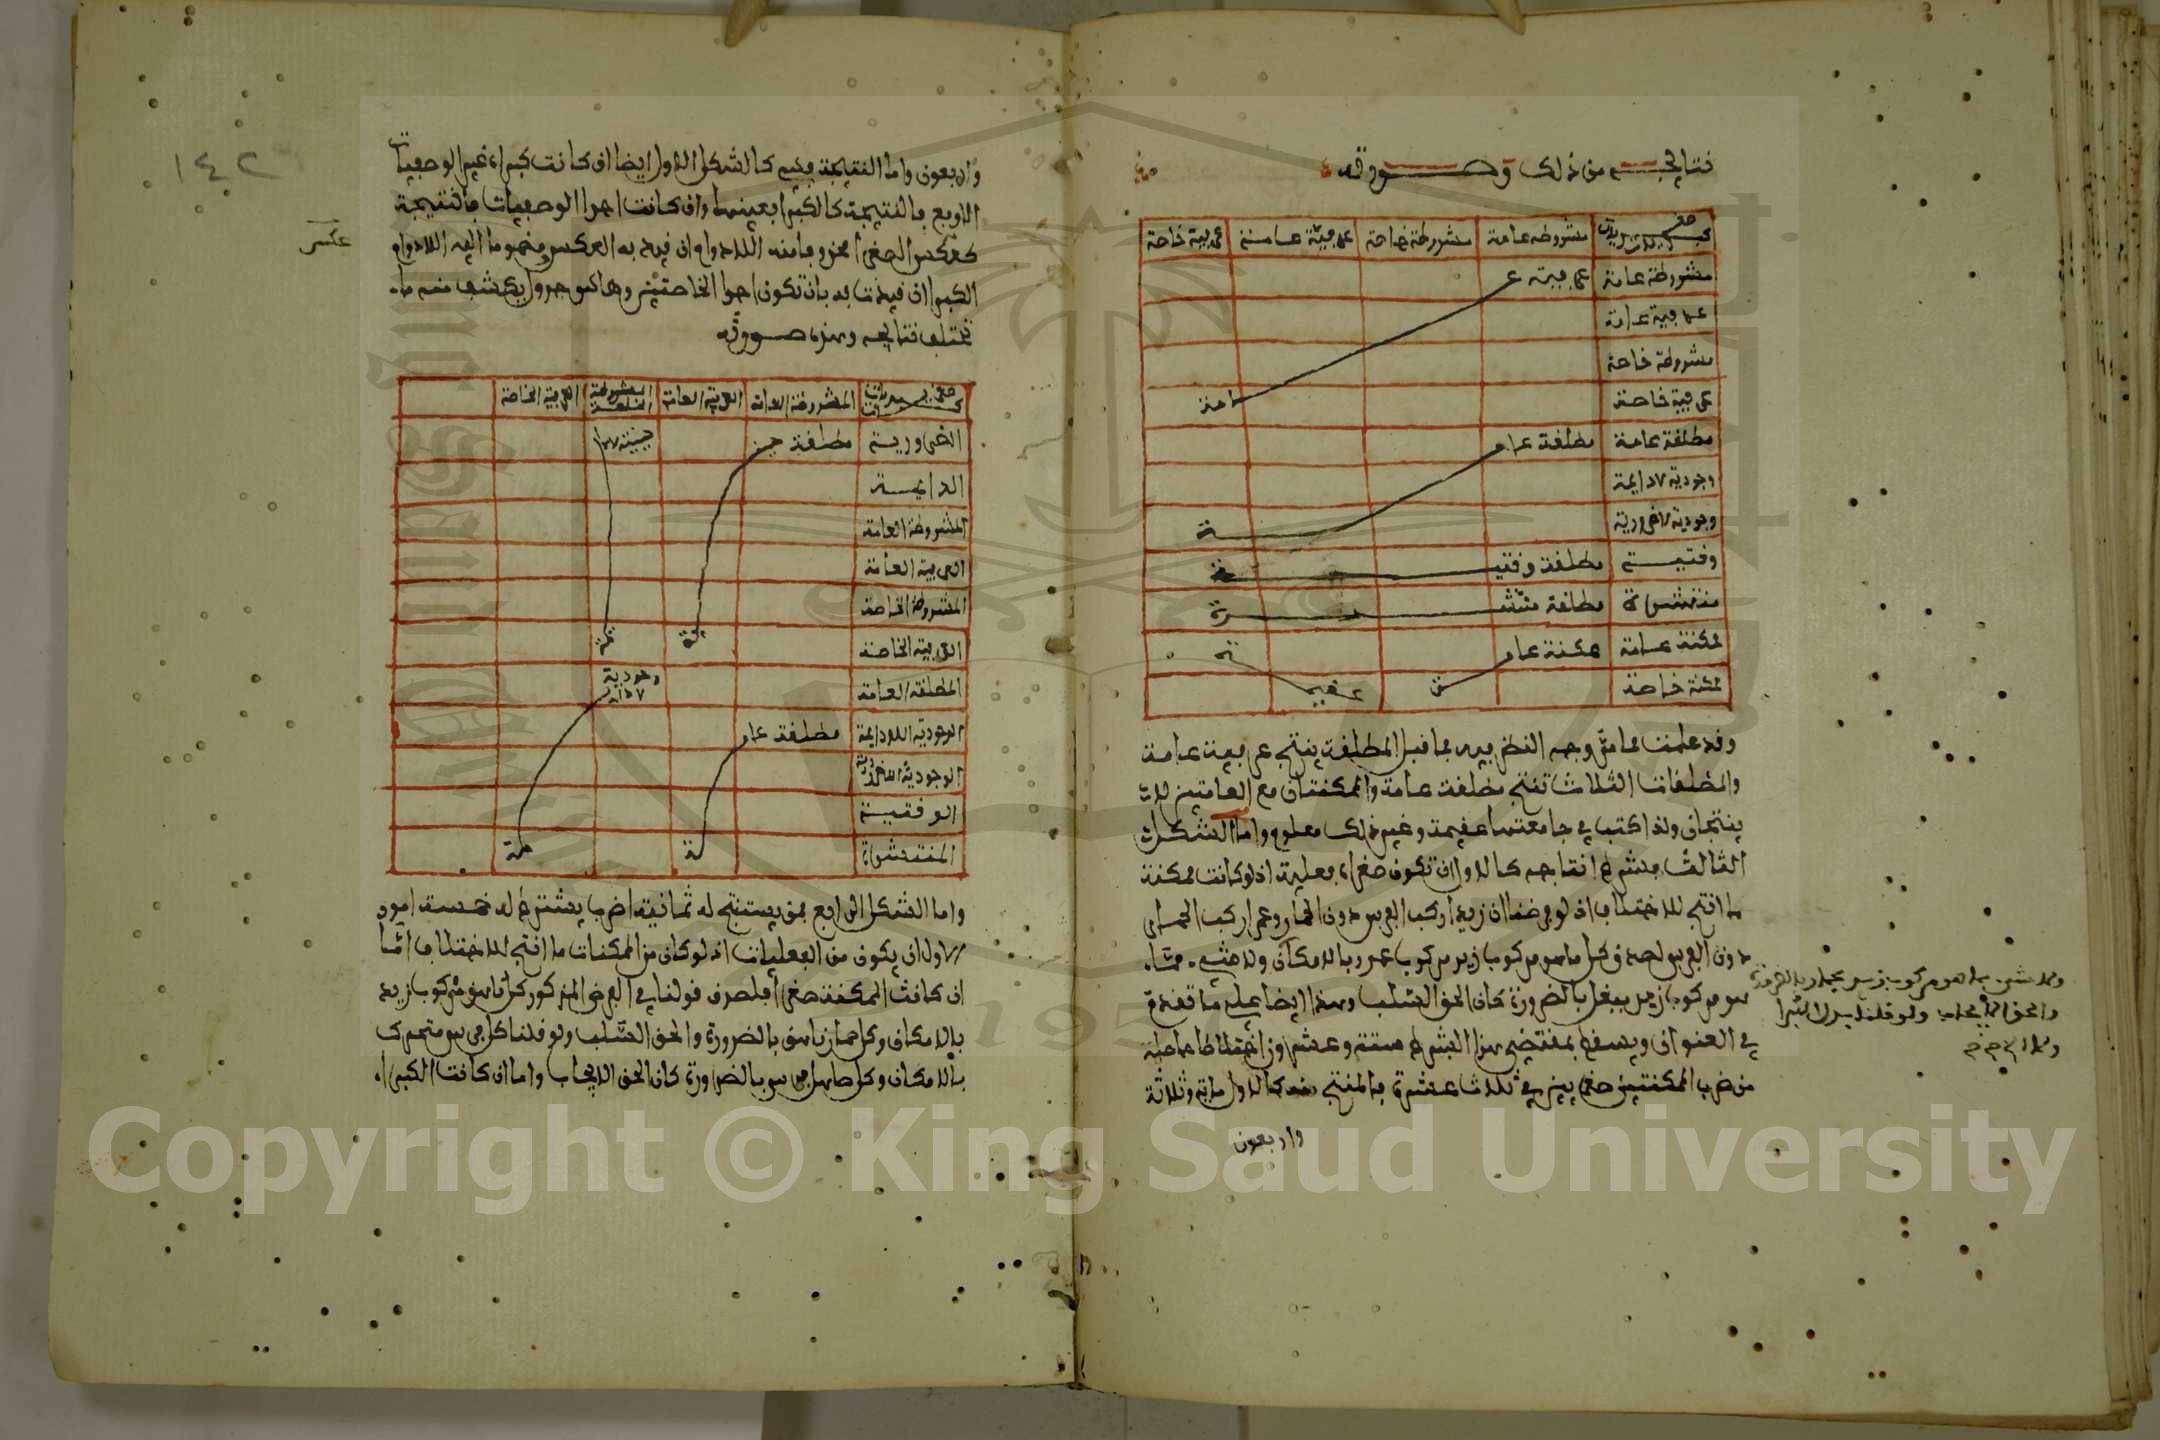 نتايجـه من ذلك وصـورته
صغريات كبريات مشروطة عامة مشروطة خاصة عرفية عامة عرفية خاصة
مشروطة عامة عرفية عـ
عرفية عامة
مشروطة خاصة
عرفية خاصة ـامة
مطلقة عامة مطلقة عامـ
وجودية لا دايمة
وجودية لا ضرورية ـة
وقتيـة مطلقة وقتيـ ـة
منتشرة مطلقة منتشـ ـرة
ممكنة عامة ممكنة عامـ ـة
ممكنة خاصة
وقد علمت مما مر وجه النظر فيه فما قبل المطلقة ينتج عرفية عامة
والمطلقات الثلاث تنتج مطلقة عامة والممكنتان مع العامتين لا
ينتجان ولذا كتب في جامعتهما عقيمة وغير ذلك معلوم واما الشكل
الثالث فشرط انتاجه كالاول ان تكون صغراه فعلية اذ لو كانت ممكنة
ما انتج للاختلاف اذ لو فرضنا ان زيدا ركب الفرس دون الحمار وعمرا ركب الحمار
دون الفرس لصدق كل ما هو مركوب زيد مركوب عمرو بالامكان ولا شيء مما
هو مركوب زيد ببغل بالضرورة كان الحق السلب وهذا ايضا على ما تقدم
في العنوان ويسقط بمقتضى هذا الشرط ستة وعشرون اختلاطا حاصلة
من ضرب الممكنتين صغريين في ثلاث عشرة فالمنتج منه كالاول ماية وثلاثة
واربعون
ولا شيء مما هو مركوب زيد بحمار بالضرورة
والحق الايجاب ولو قلنا بدل الكبرا
واربعون واما النتيجة فهي كالشكل الاول ايضا ان كانت كبراه غير الوصفيات
الاربع فالنتيجة كالكبرا بعينها وان كانت احدا الوصفيات فالنتيجة
كعكس الصغرا محذوفا منه اللادوام ان قيد به العكس ومضموما اليه اللادوام
عكس
الكبرا ان قيدت به بان تكون احدا الخاصتين وهاكم جدولا يكشف منه ما
تختلف نتايجه وهذه صـورته
١٤٢
صغريات كبريات المشروطة العامة العرفية العامة المشروطة الخاصة العرفية الخاصة
الضرورية مطلقة حيـ حينية لا د
الدايمـة
المشروطة العامة
العرفية العامة
المشروطة الخاصة
العرفية الخاصة
المطلقة العامة وجودية لا دا
الوجودية اللادايمة مطلقة عامـ
الوجودية اللاضرورية
الوقتيـة
المنتشرة ـة ـمة
واما الشكل الرابع فمن يستنتج له ثمانية اضرب يشترط له خمسة امور
الاول ان يكون من الفعليات اذ لو كان من الممكنات ما انتج للاختلاف اما
ان كانت الممكنة صغرا فلصدق قولنا في الفرض المذكور كل ناهق مركوب زيد
بالامكان وكل حمار ناهق بالضرورة والحق السلب ولو قلنا كل فرس متحرك
بالامكان وكل صاهل فرس بالضرورة كان الحق الايجاب واما ان كانت الكبرا